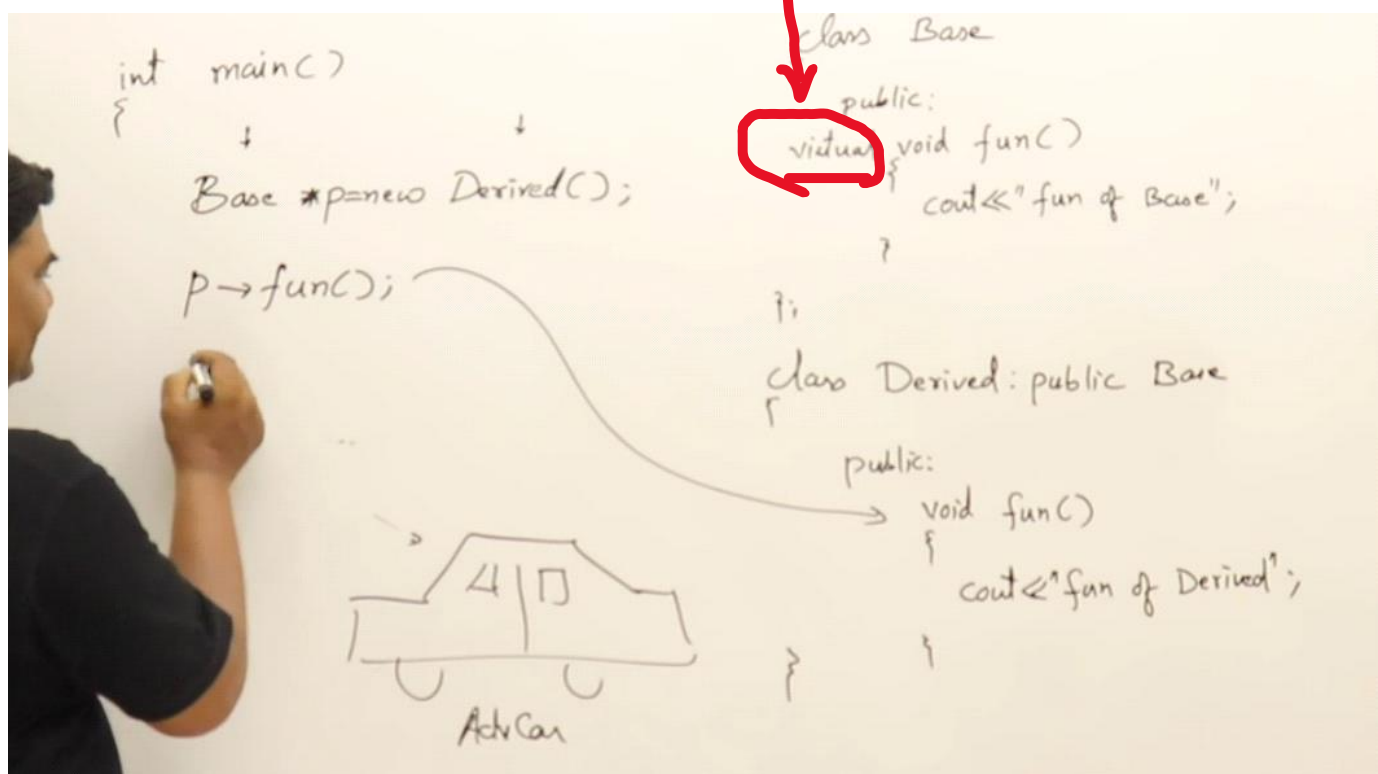 int main()
{
Base *p=new Derived();
p→fun();
AdvCar
class Base
public:
virtual void fun()
{
cout<<"fun of Base";
}
};
class Derived: public Base
{
public:
void fun()
{
cout<<"fun of Derived";
}
}